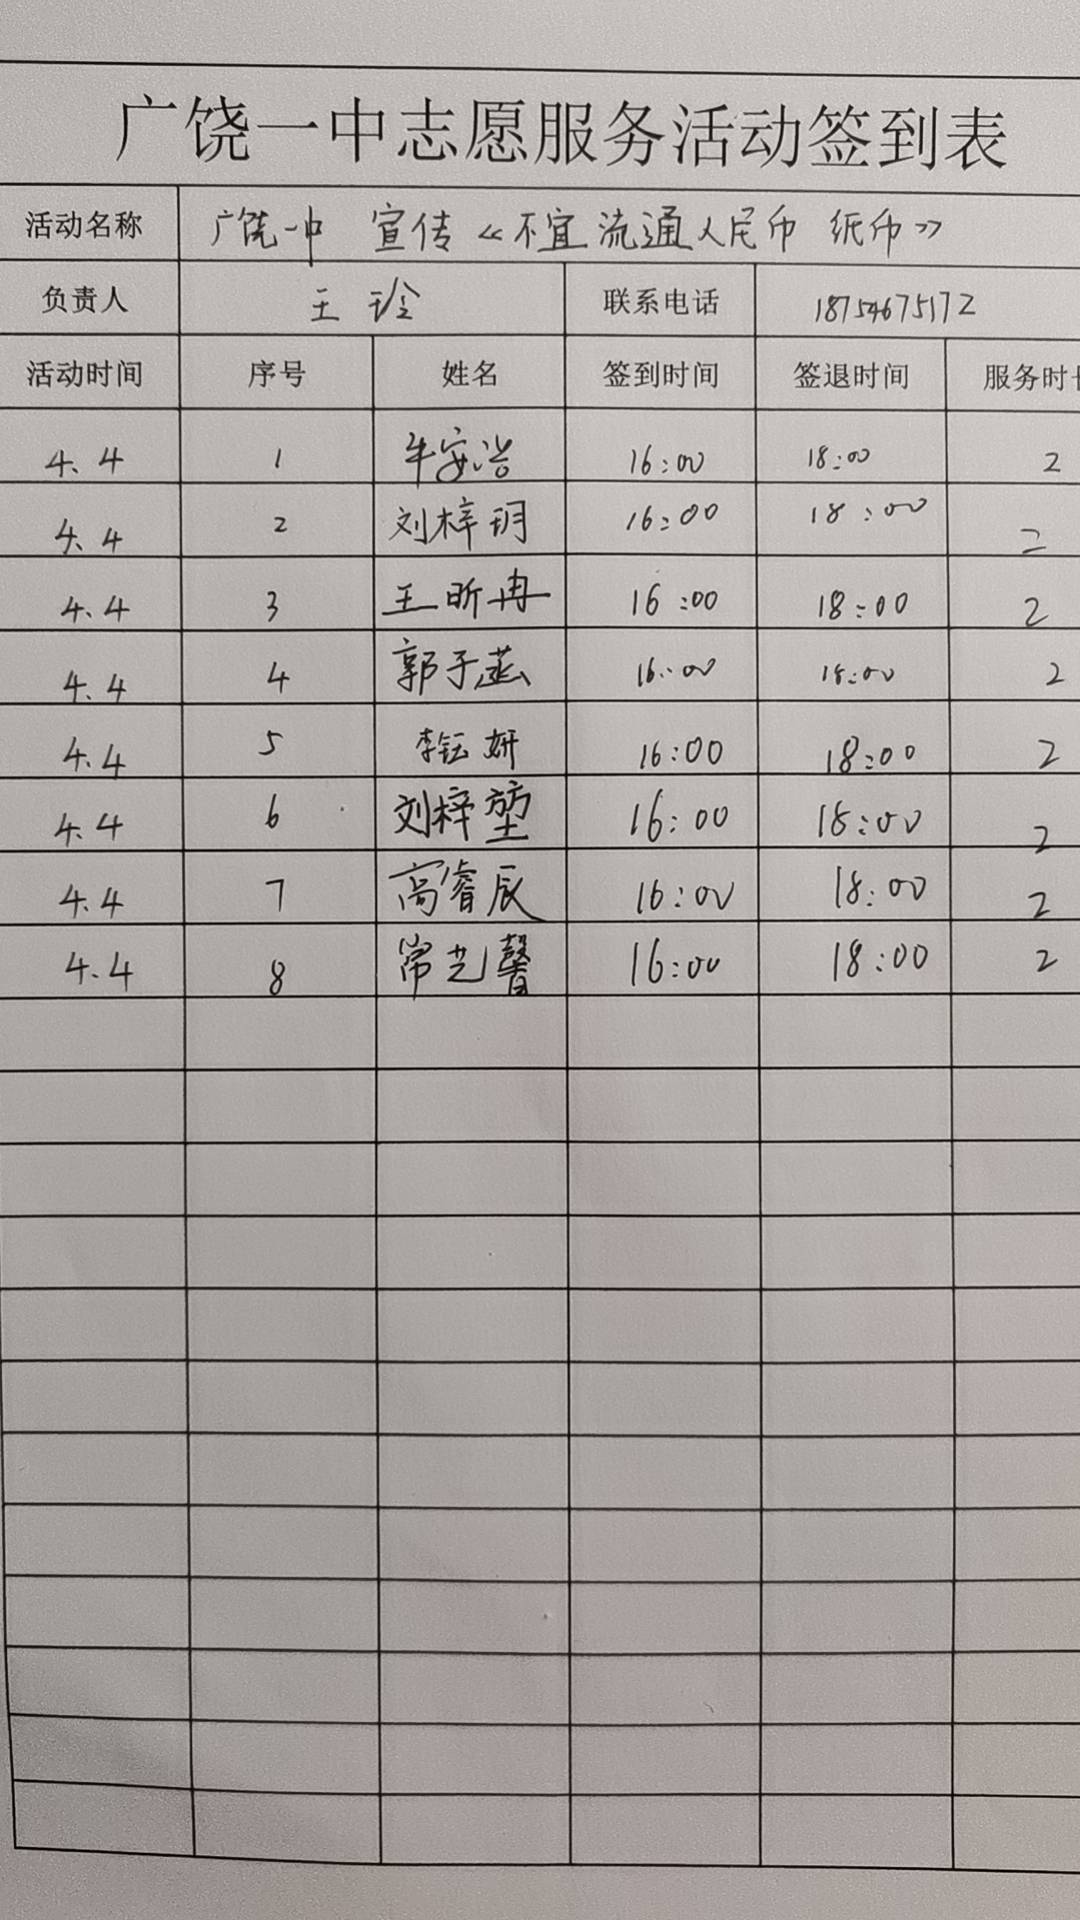 广饶一中志愿服务活动签到表
活动名称 广饶一中 宣传《不宜流通人民币 纸币》
负责人 王玲 联系电话 18754675172
活动时间 序号 姓名 签到时间 签退时间 服务时长
4.4 1 牛安浩 16:00 18:00 2
4.4 2 刘梓玥 16:00 18:00 2
4.4 3 王昕冉 16:00 18:00 2
4.4 4 郭子菡 16:00 18:00 2
4.4 5 李钰妍 16:00 18:00 2
4.4 6 刘梓堃 16:00 18:00 2
4.4 7 高睿辰 16:00 18:00 2
4.4 8 常艺馨 16:00 18:00 2